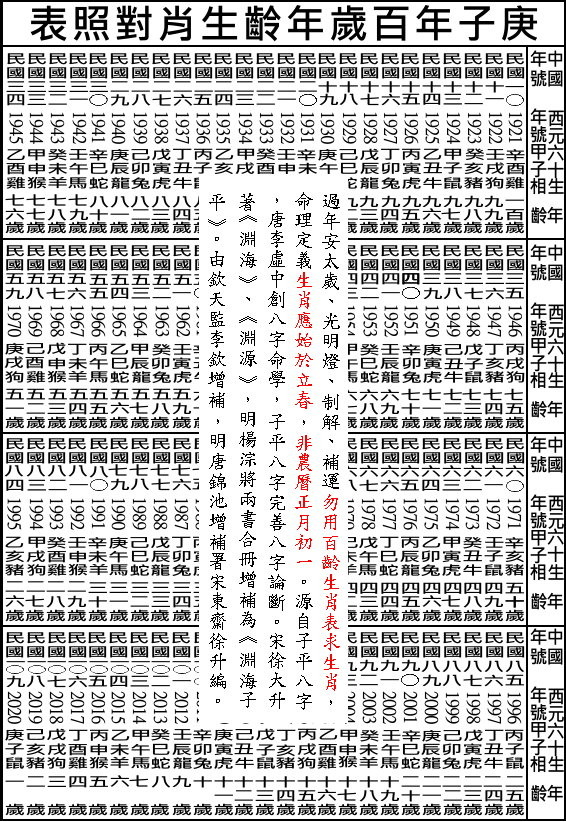 庚子年百歲年齡生肖對照表
中國年號 西元年號 六十甲子生相 年齡
民國一〇 1921 辛酉雞 一百歲
民國十一 1922 壬戌狗 九九歲
民國十二 1923 癸亥豬 九八歲
民國十三 1924 甲子鼠 九七歲
民國十四 1925 乙丑牛 九六歲
民國十五 1926 丙寅虎 九五歲
民國十六 1927 丁卯兔 九四歲
民國十七 1928 戊辰龍 九三歲
民國十八 1929 己巳蛇 九二歲
民國十九 1930 庚午
民國二〇 1931 辛未
民國二一 1932 壬申
民國二二 1933 癸酉
民國二三 1934 甲戌
民國二四 1935 乙亥
民國二五 1936 丙子
民國二六 1937 丁丑牛 八四歲
民國二七 1938 戊寅虎 八三歲
民國二八 1939 己卯兔 八二歲
民國二九 1940 庚辰龍 八一歲
民國三〇 1941 辛巳蛇 八十歲
民國三一 1942 壬午馬 七九歲
民國三二 1943 癸未羊 七八歲
民國三三 1944 甲申猴 七七歲
民國三四 1945 乙酉雞 七六歲
過年安太歲、光明燈、制解、補運勿用百齡生肖表求生肖，
命理定義生肖應始於立春，非農曆正月初一。源自子平八字
，唐李虛中創八字命學，子平八字完善八字論斷。宋徐大升
著《淵海》、《淵源》，明楊淙將兩書合冊增補為《淵海子
平》。由欽天監李欽增補，明唐錦池增補署宋東齋徐升編。
中國年號 西元年號 六十甲子生相 年齡
民國三五 1946 丙戌狗 七五歲
民國三六 1947 丁亥豬 七四歲
民國三七 1948 戊子鼠 七三歲
民國三八 1949 己丑牛 七二歲
民國三九 1950 庚寅虎 七一歲
民國四〇 1951 辛卯兔 七十歲
民國四一 1952 壬辰龍 六九歲
民國四二 1953 癸巳蛇 六八歲
民國五一 1962 壬寅虎 五九歲
民國五二 1963 癸卯兔 五八歲
民國五三 1964 甲辰龍 五七歲
民國五四 1965 乙巳蛇 五六歲
民國五五 1966 丙午馬 五五歲
民國五六 1967 丁未羊 五四歲
民國五七 1968 戊申猴 五三歲
民國五八 1969 己酉雞 五二歲
民國五九 1970 庚戌狗 五一歲
中國年號 西元年號 六十甲子生相 年齡
民國六〇 1971 辛亥豬 五十歲
民國六一 1972 壬子鼠 四九歲
民國六二 1973 癸丑牛 四八歲
民國六三 1974 甲寅虎 四七歲
民國六四 1975 乙卯兔 四六歲
民國六五 1976 丙辰龍 四五歲
民國六六 1977 丁巳蛇 四四歲
民國六七 1978 戊午馬 四三歲
民國七六 1987 丁卯兔 三四歲
民國七七 1988 戊辰龍 三三歲
民國七八 1989 己巳蛇 三二歲
民國七九 1990 庚午馬 三一歲
民國八〇 1991 辛未羊 三十歲
民國八一 1992 壬申猴 二九歲
民國八二 1993 癸酉雞 二八歲
民國八三 1994 甲戌狗 二七歲
民國八四 1995 乙亥豬 二六歲
中國年號 西元年號 六十甲子生相 年齡
民國八五 1996 丙子鼠 二五歲
民國八六 1997 丁丑牛 二四歲
民國八七 1998 戊寅虎 二三歲
民國八八 1999 己卯兔 二二歲
民國八九 2000 庚辰龍 二一歲
民國九〇 2001 辛巳蛇 二十歲
民國九一 2002 壬午馬 十九歲
民國九二 2003 癸未羊 十八歲
民國九三 2004 甲申猴 十七歲
乙酉雞 十六歲
丙戌狗 十五歲
丁亥豬 十四歲
戊子鼠 十三歲
己丑牛 十二歲
庚寅虎 十一歲
辛卯兔 十歲
民國一〇一 2012 壬辰龍 九歲
民國一〇二 2013 癸巳蛇 八歲
民國一〇三 2014 甲午馬 七歲
民國一〇四 2015 乙未羊 六歲
民國一〇五 2016 丙申猴 五歲
民國一〇六 2017 丁酉雞 四歲
民國一〇七 2018 戊戌狗 三歲
民國一〇八 2019 己亥豬 二歲
民國一〇九 2020 庚子鼠 一歲